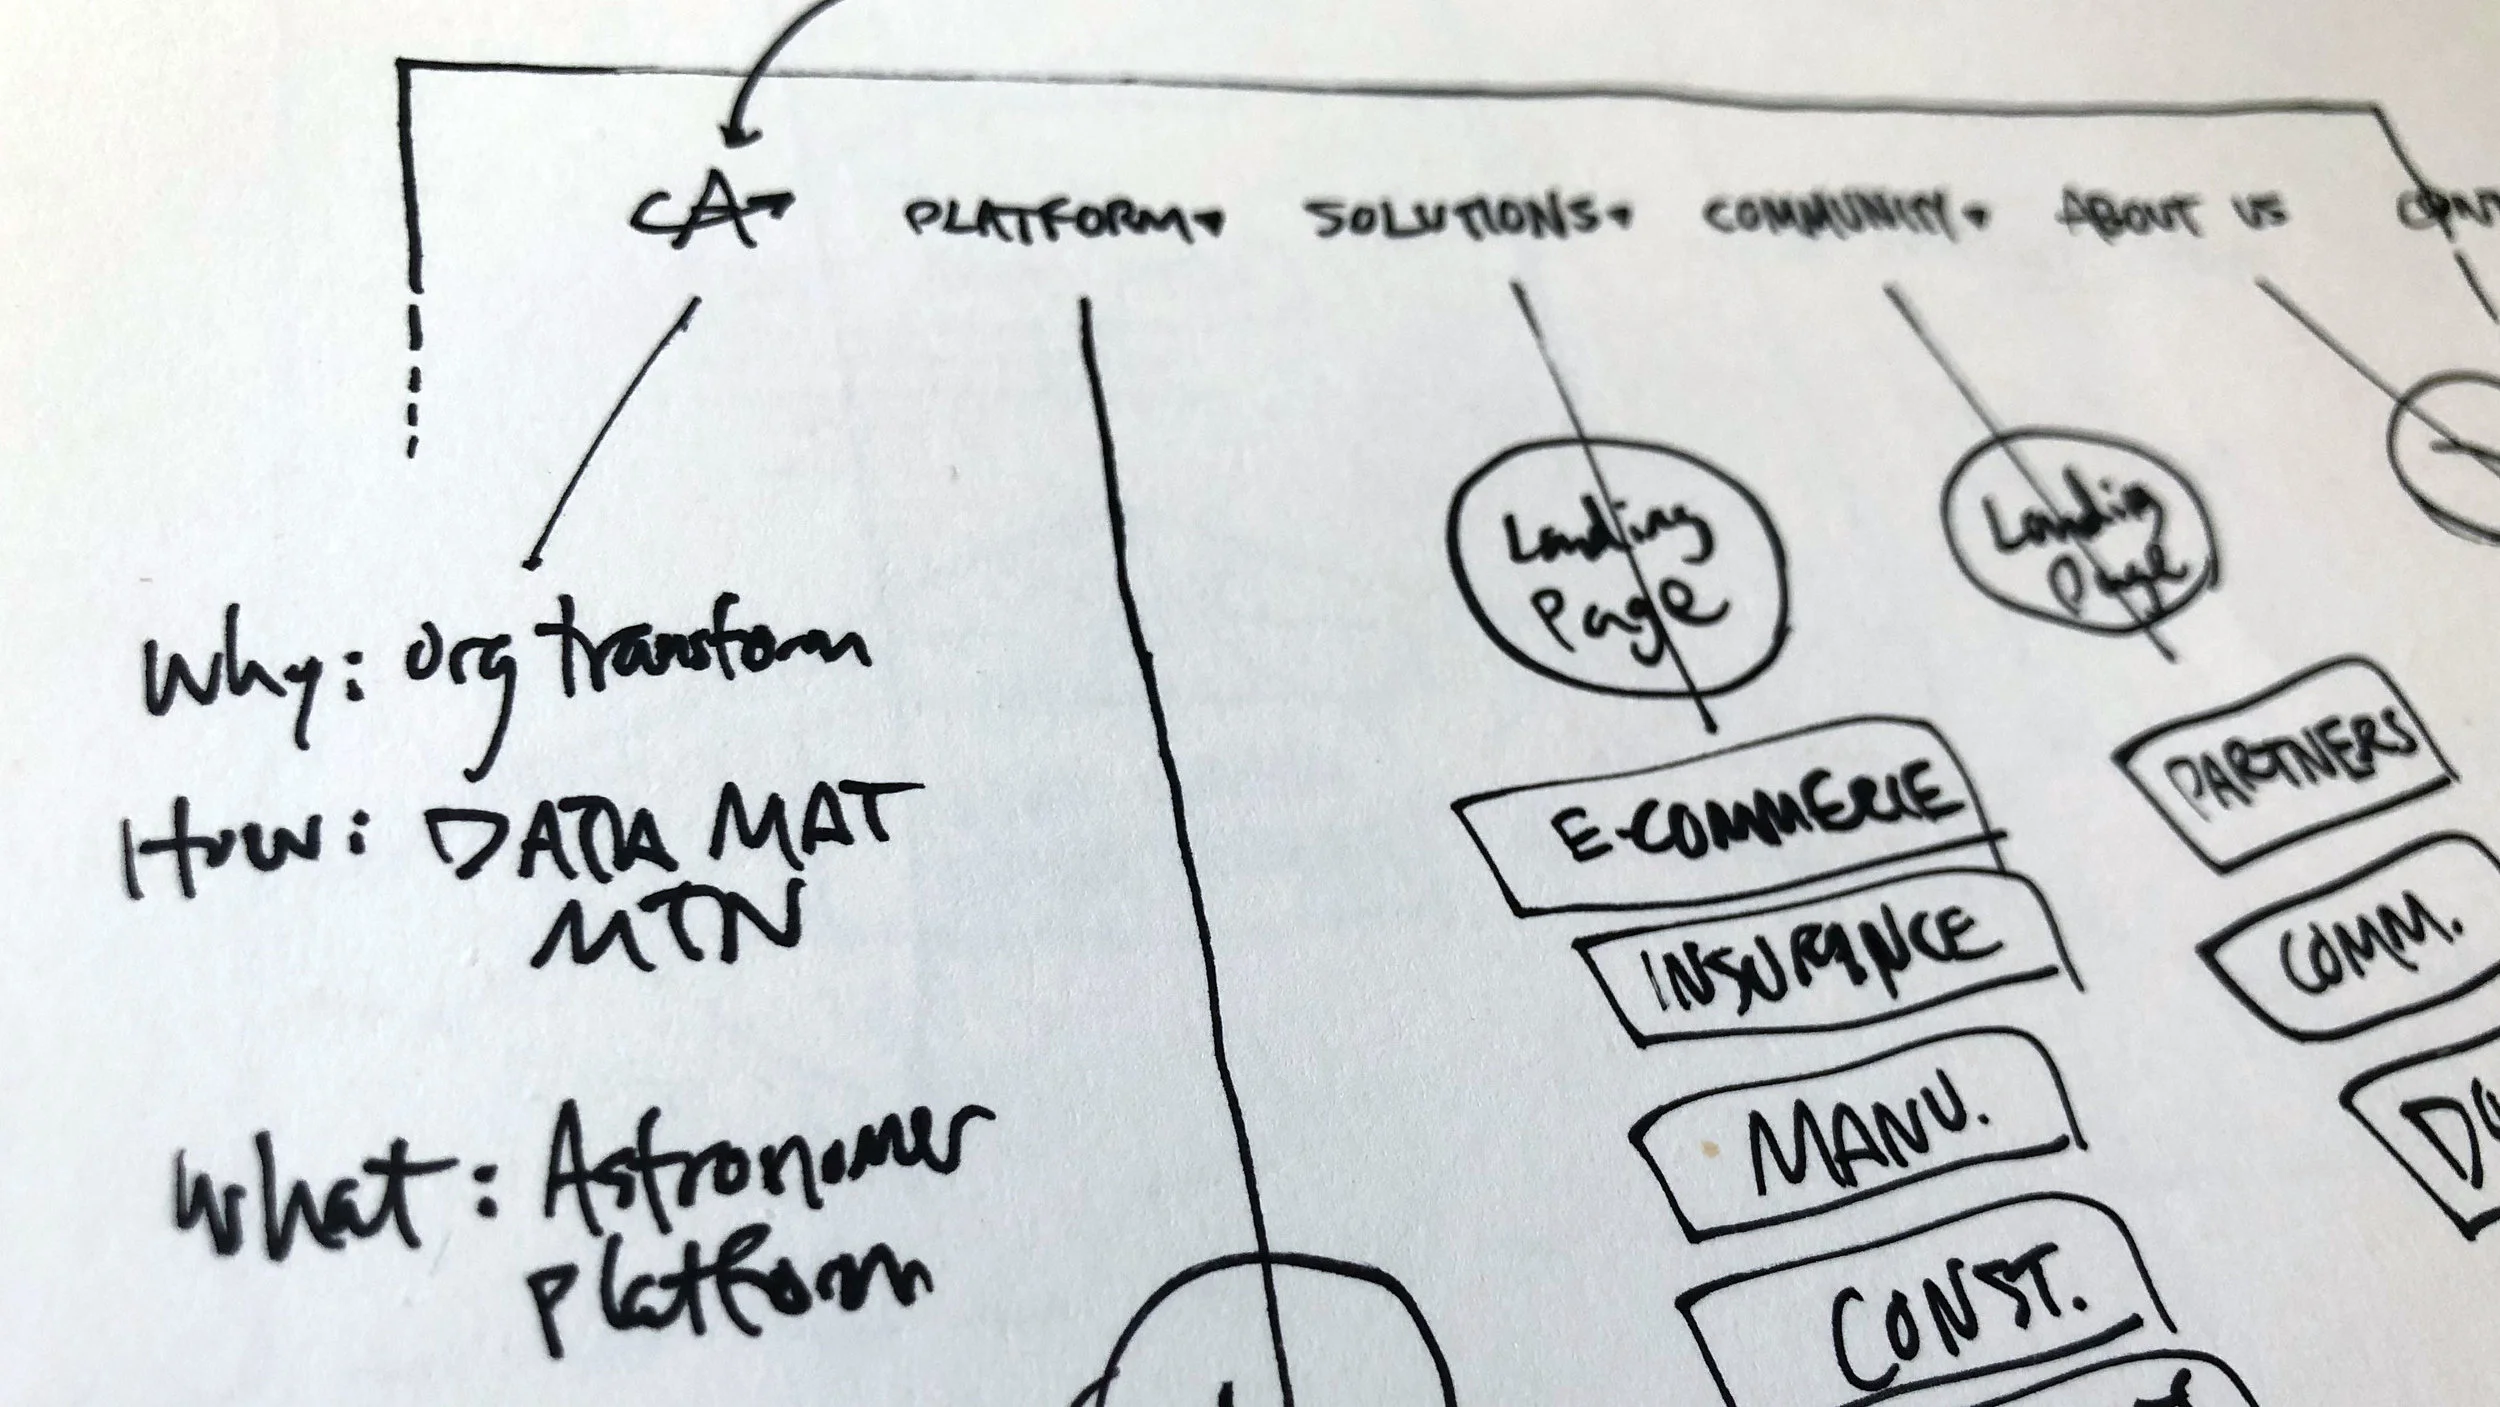 CA
PLATFORM
SOLUTIONS
COMMUNITY
ABOUT US
Why: org transform
How: DATA MAT
MTN
What: Astronomer
Platform
Landing
Page
E-COMMERCE
INSURANCE
MANU.
CONST.
Landing
Page
PARTNERS
COMM.